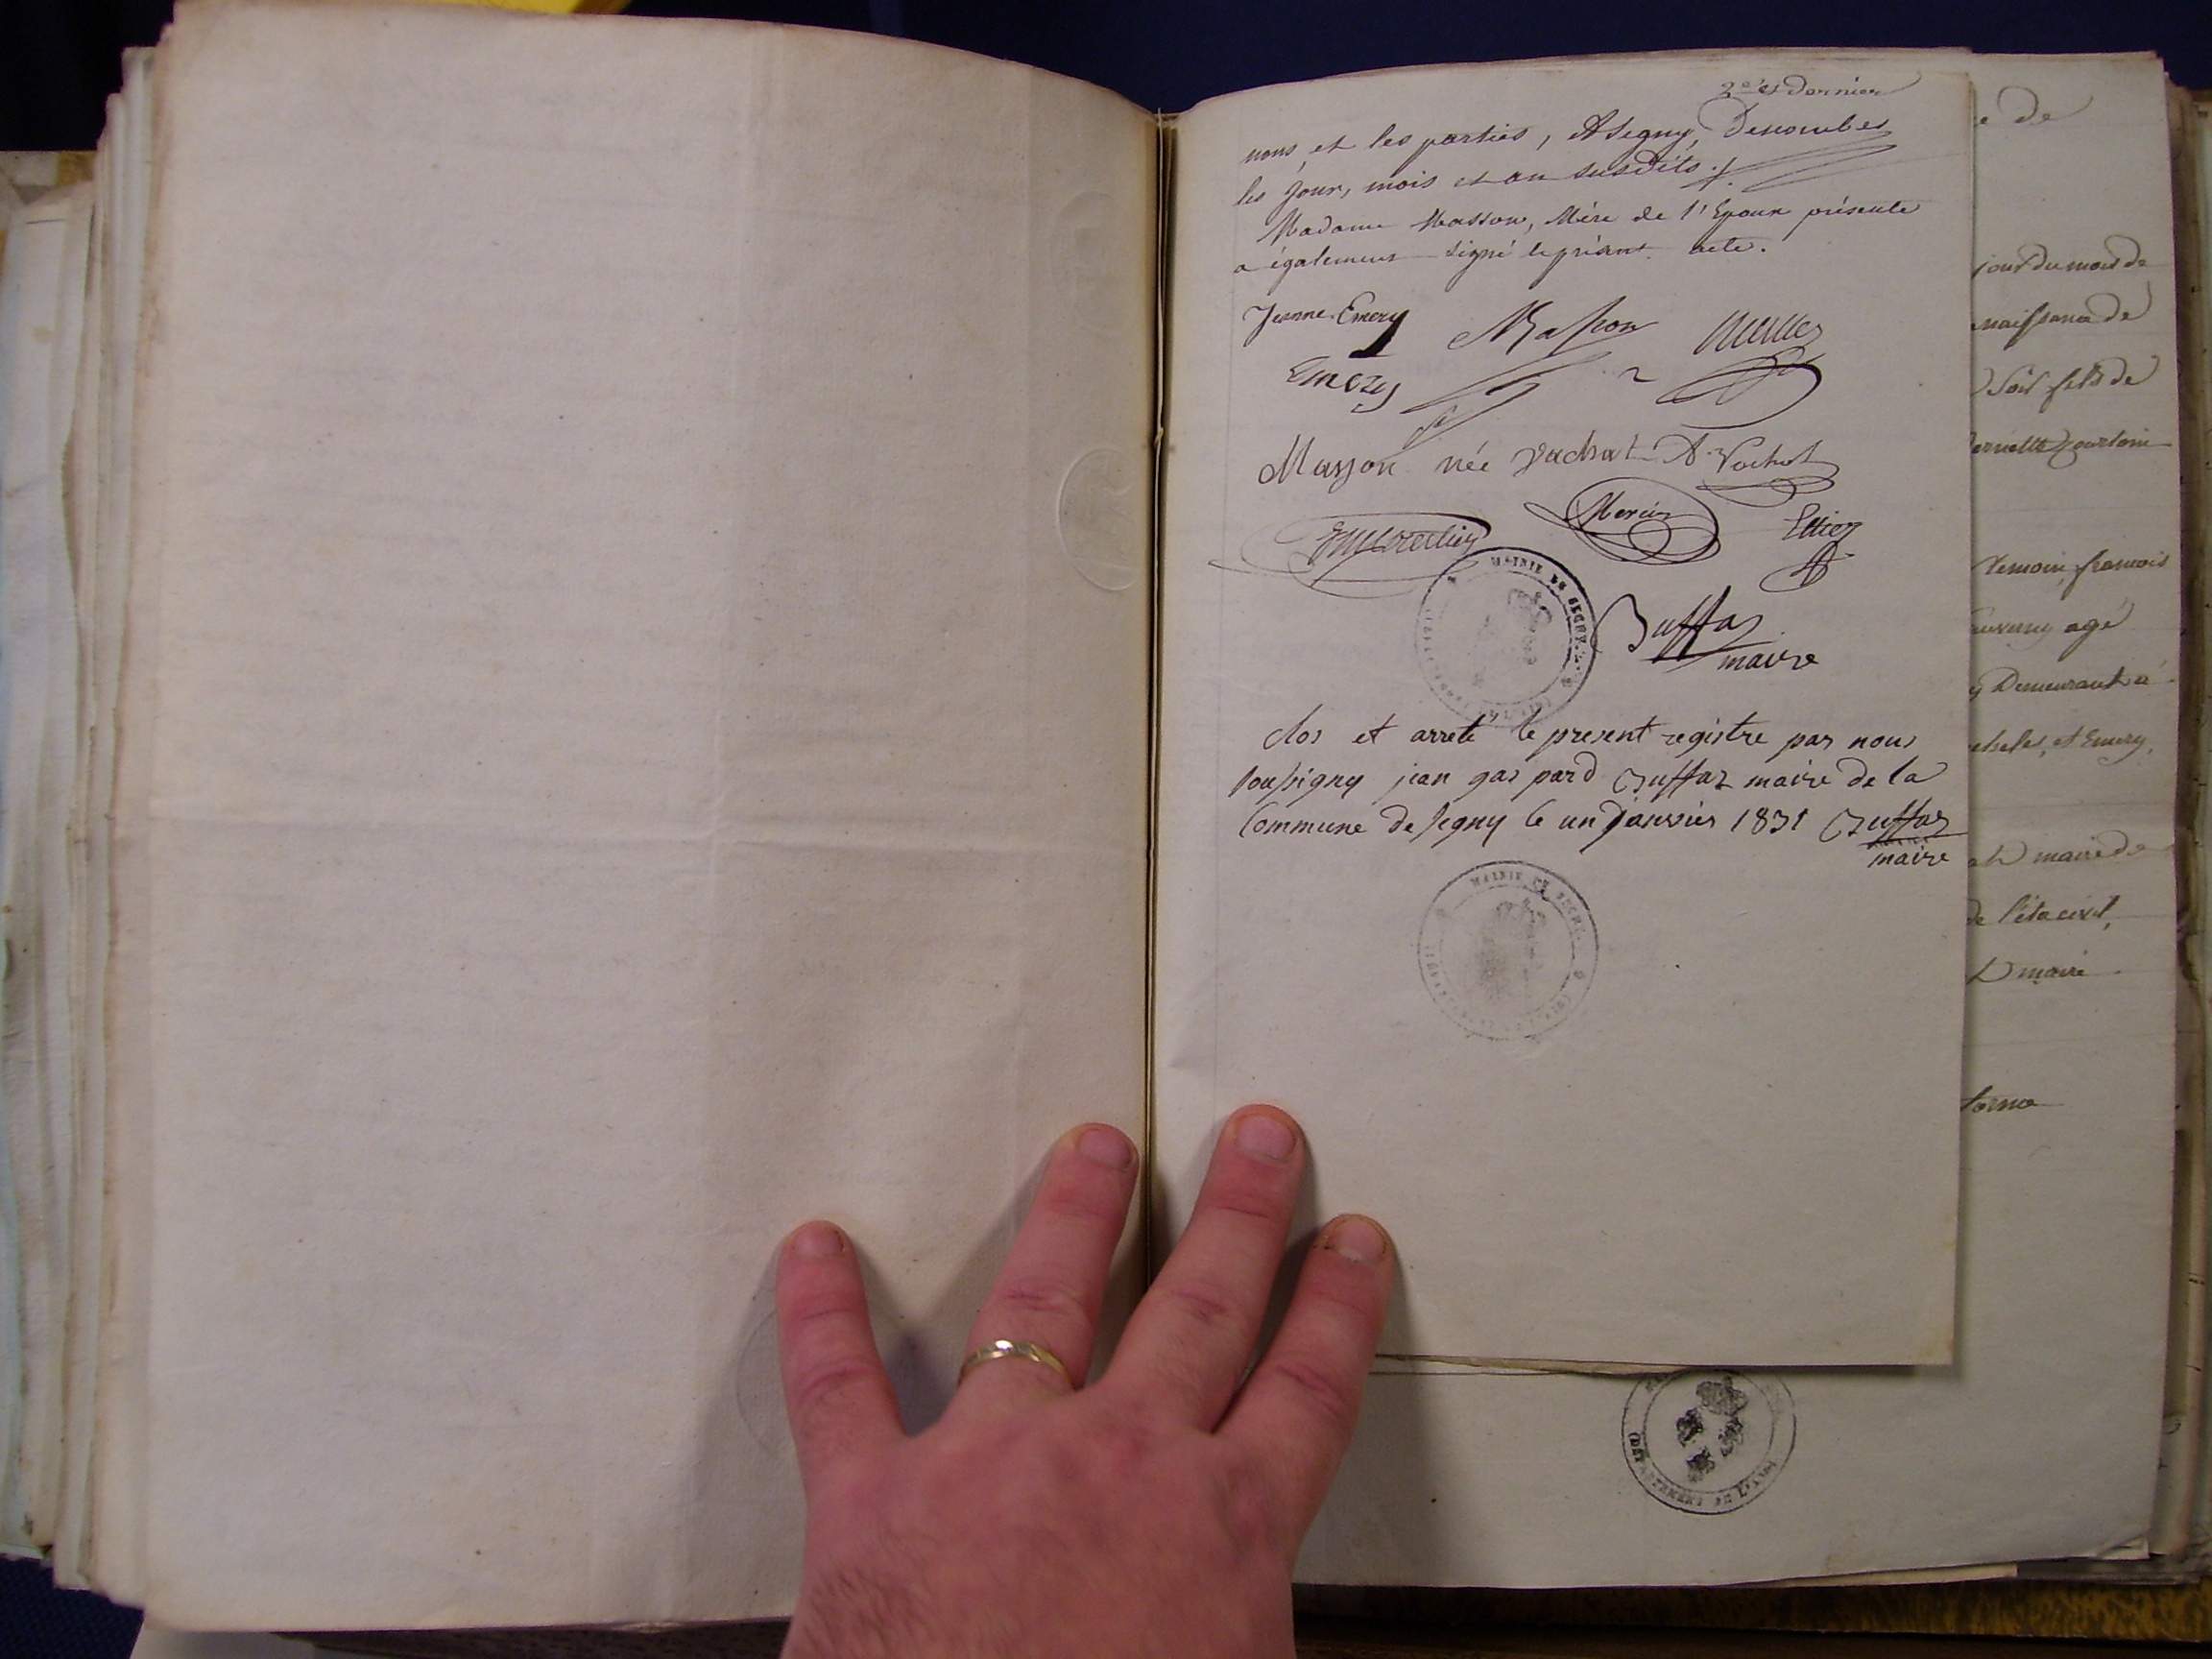 2e et Dernier
nous et les parties, A Segny, Descombes
les jour, mois et an susdits ./.
Madame Masson, Mère de l'Epoux présente
a également signé le présent acte.
Jeanne Emery Masson
Emery
Masson née Vachat A. Vachat
Mercier
MAIRIE DE SEGNY
Buffaz
maire
clos et arreté le present registre par nous
soussigny jean gaspard Buffaz maire de la
Commune de Segny le un Janvier 1831 Buffaz
maire
MAIRIE DE SEGNY
e de
jour du mois de
naissance de
Soit fils de
temoin, francois
agé
Demeurant à
et Emery,
maire de
de l'éta civil,
maire
DÉPARTEMENT DE L'AIN